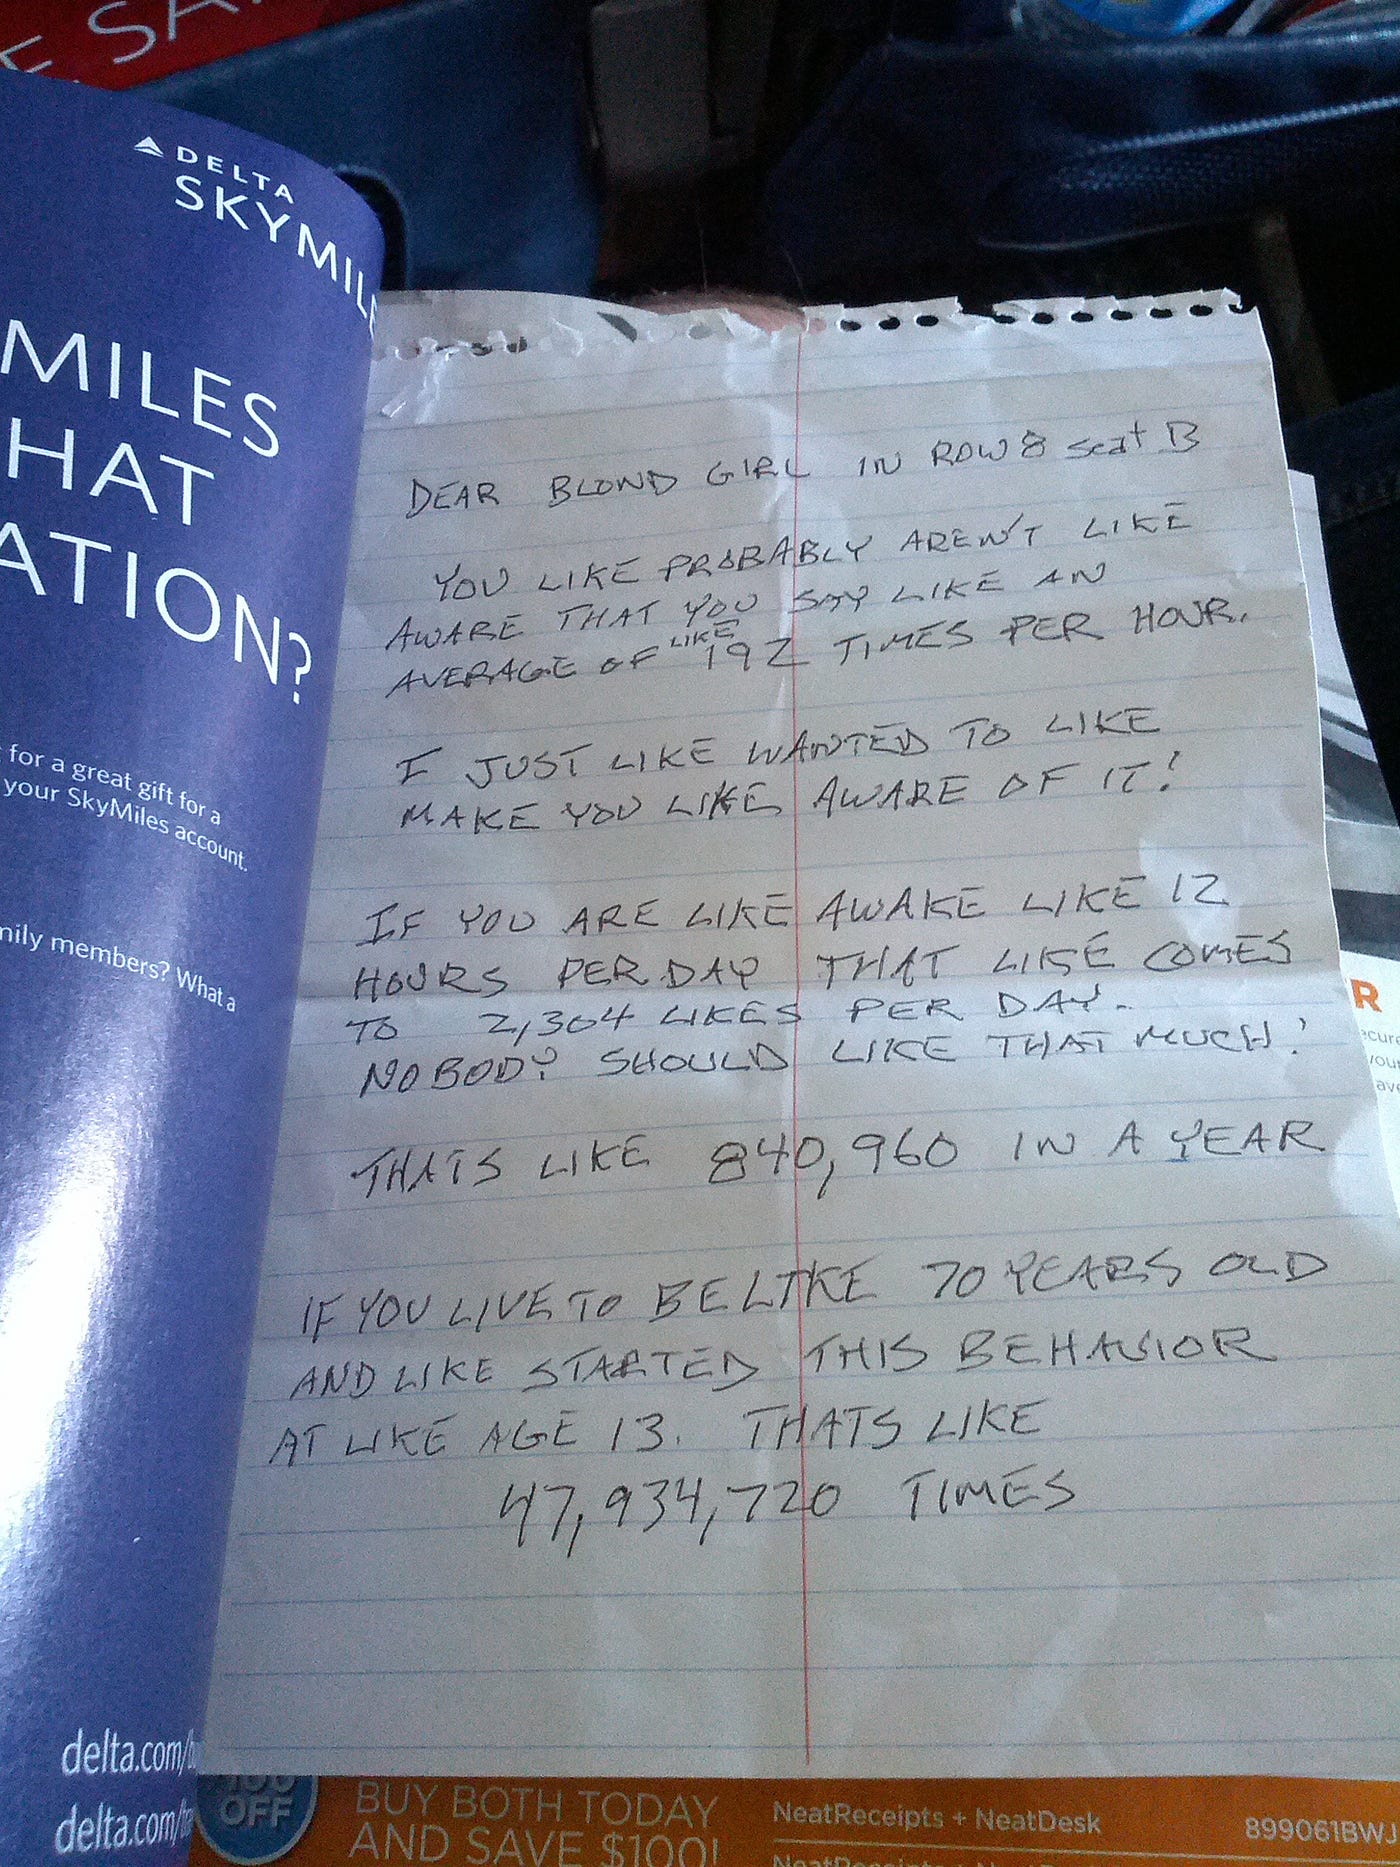 DELTA
SKYMIL
MILES
HAT
ATION?
for a great gift for a
your SkyMiles account.
mily members? What a
delta.com/
delta.com/
DEAR BLOND GIRL IN ROW 8 seat B
YOU LIKE PROBABLY AREN'T LIKE
AWARE THAT YOU SAY LIKE AN
AVERAGE OF LIKE 192 TIMES PER HOUR.
I JUST LIKE WANTED TO LIKE
MAKE YOU LIKE AWARE OF IT!
IF YOU ARE LIKE AWAKE LIKE 12
HOURS PER DAY THAT LIKE COMES
TO 2,304 LIKES PER DAY.
NOBODY SHOULD LIKE THAT MUCH!
THATS LIKE 840,960 IN A YEAR
IF YOU LIVE TO BE LIKE 70 YEARS OLD
AND LIKE STARTED THIS BEHAVIOR
AT LIKE AGE 13. THATS LIKE
47,934,720 TIMES
R
OFF
BUY BOTH TODAY
AND SAVE $100!
NeatReceipts + NeatDesk
899061BWJ